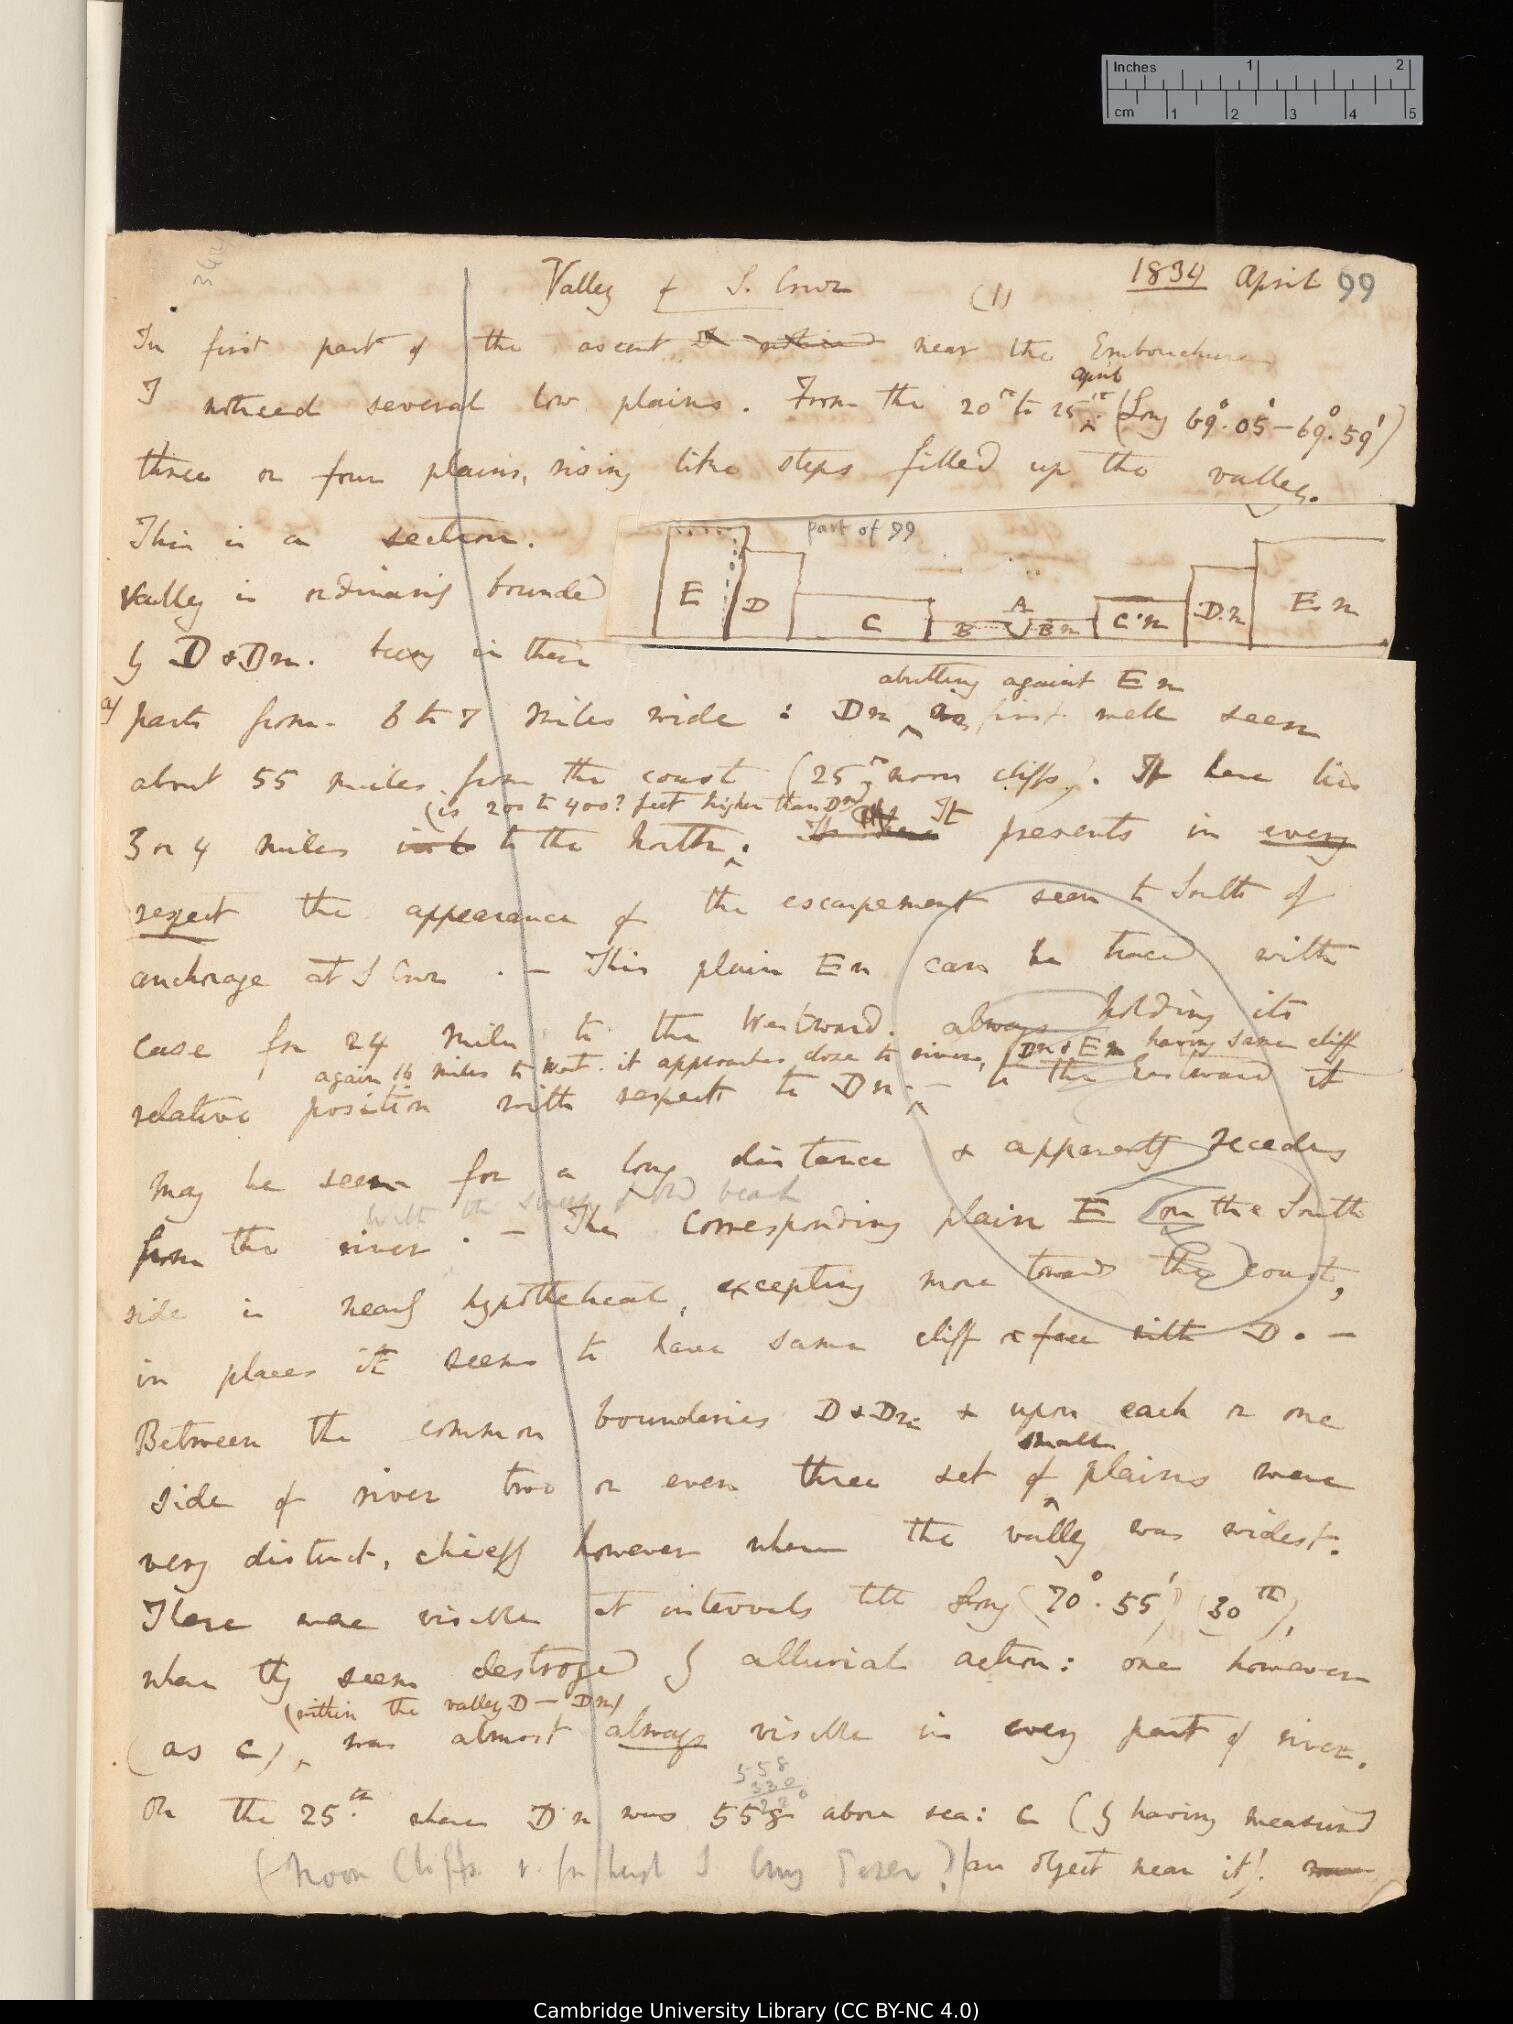 Inches 1 2
cm 1 2 3 4 5
Valley of S. Cruz (1) 1834 April 99
In first part of the ascent near the Embouchure
I noticed several low plains. From the 20th to 25th April (Long 69°.05'–69°.59')
three or four plains, rising like steps filled up the valley.
part of 99
This is a section.
Valley is ordinarily bounded
by D & Dn. being in these
E D C B A Bn C.n D.n E n
abutting against E n
parts from 6 to 7 miles wide: Dn first well seen
about 55 miles from the coast (25th noon cliffs). It here lies
(is 200 to 400? feet higher than Dn)
3 or 4 miles to the North. It presents in every
respect the appearance of the escarpement seen to South of
anchorage at S Cruz. — This plain En can be traced with
ease for 24 miles to the Westward. always holding its
again 16 miles to West. it approaches close to river, Dn & En having same cliff
relative position with respect to Dn. — to the Eastward it
may be seen for a long distance & apparently recedes
with the sweep of old beach
from the river. — The corresponding plain E on the South
side is nearly hypothetical, excepting more toward the coast,
in places it seems to have same cliff & face with D. —
Between the common boundaries D & Dn & upon each or one
smaller
side of river two or even three set of plains were
very distinct, chiefly however when the valley was widest.
These were visible at intervals till Long (70°.55') (30th),
when they seem destroyed by alluvial action: one however
(within the valley D — Dn)
(as C), was almost always visible in every part of river.
558
330
220
On the 25th when Dn was 558 above sea: C (by having measured
(Noon Cliffs an object near it).
Cambridge University Library (CC BY-NC 4.0)